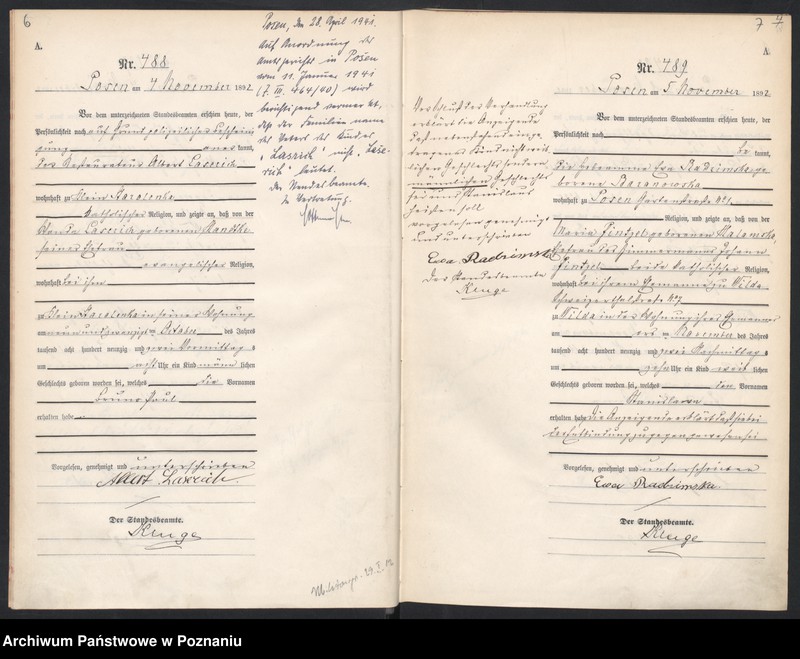 6
A.
Nr. 488
Posen am 4 November 1892
Vor dem unterzeichneten Standesbeamten erschien heute, der
Persönlichkeit nach auf Grund polizeilicher Beschein
kannt,
der Restaurateur Albert Laserich
wohnhaft zu Klein Starolenka
katholischer Religion, und zeigte an, daß von der
Laserich geborenen
seiner Ehefrau
evangelischer Religion,
wohnhaft bei ihm
zu Klein Starolenka in seiner Wohnung
am neun und zwanzigsten Oktober des Jahres
tausend acht hundert neunzig und zwei Vormittags
um acht Uhr ein Kind männlichen
Geschlechts geboren worden sei, welches die Vornamen
Bruno Paul
erhalten habe
Vorgelesen, genehmigt und unterschrieben
Albert Laserich
Der Standesbeamte.
Kluge
Posen, den 28. April 1941.
Auf Anordnung des
Amtsgerichts in Posen
vom 11. Januar 1941
wird
berichtigend vermerkt,
daß der Familienname
des Vaters des Kindes
"Lasrich" nicht "Lase-
rich" lautet.
Der Standesbeamte.
In Vertretung.
7
A.
Nr. 489
Posen am 5 November 1892
Vor dem unterzeichneten Standesbeamten erschien heute, der
Persönlichkeit nach
be kannt,
die Hebamme Eva Radzimska ge
borene Baranowska
wohnhaft zu Posen Gartenstraße
Religion, und zeigte an, daß von der
Maria Pintzel geborenen
Ehefrau des Zimmermanns Johann
Pintzel beide katholischer Religion,
wohnhaft bei ihrem Ehemanne zu Wilda
zu Wilda in der Wohnung ihres Ehemannes
am drei ten November des Jahres
tausend acht hundert neunzig und zwei Nachmittags
um zehn Uhr ein Kind weib lichen
Geschlechts geboren worden sei, welches den Vornamen
Stanislawa
erhalten habe Die Anzeigende erklärt daß sie bei
der Entbindung zugegen gewesen sei
Vorgelesen, genehmigt und unterschrieben
Ewa Radzimska.
Der Standesbeamte.
Kluge
Vor Schluß der Verhandlung
erklärt die Anzeigende
daß nebenstehend einge
tragenes Kind nicht weib
lichen Geschlechts sondern
männlichen Geschlechts
sei und Stanislaus
heißen soll
vorgelesen genehmigt
und unterschrieben
Ewa Radzimska
Der Standesbeamte
Kluge
Archiwum Państwowe w Poznaniu